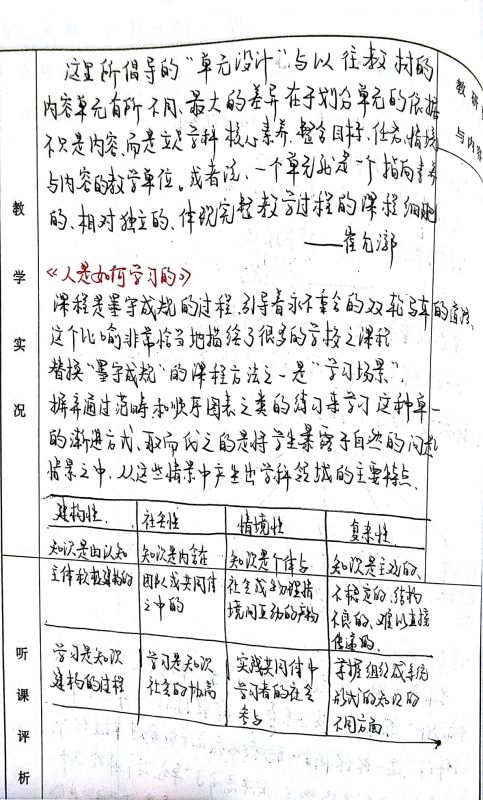 这里所倡导的“单元设计”与以往教材的
内容单元有所不同、最大的差异在于划分单元的依据
不只是内容，而是立足学科核心素养，整合目标、任务、情境
与内容的教学单位。或者说，一个单元就是一个指向素养
的、相对独立的、体现完整教学过程的课程细胞
——崔允漷
《人是如何学习的》
课程是墨守成规的过程，引导着永不重合的双轮马车的道路，
这个比喻非常恰当地描绘了很多的学校之课程
替换“墨守成规”的课程方法之一是“学习场景”，
摒弃通过范畴和顺序图表之类的练习来学习这种单一
的渐进方式、取而代之的是将学生暴露于自然的问题
情景之中，从这些情景中产生出学科领域的主要特点．
建构性 社会性 情境性 复杂性
知识是由认知 知识是内含在 知识是个体与 知识是主观的、
主体积极建构的 团队或共同体 社会或物理情 不稳定的、结构
之中的 境间互动的产物 不良的、难以直接
传递的．
学习是知识 学习是知识 实践共同体中 掌握组织成系统
建构的过程 社会的协商 学习者的社会 形式的知识的
参与 不同方面．
教学实况
听课评析
教研
与内容